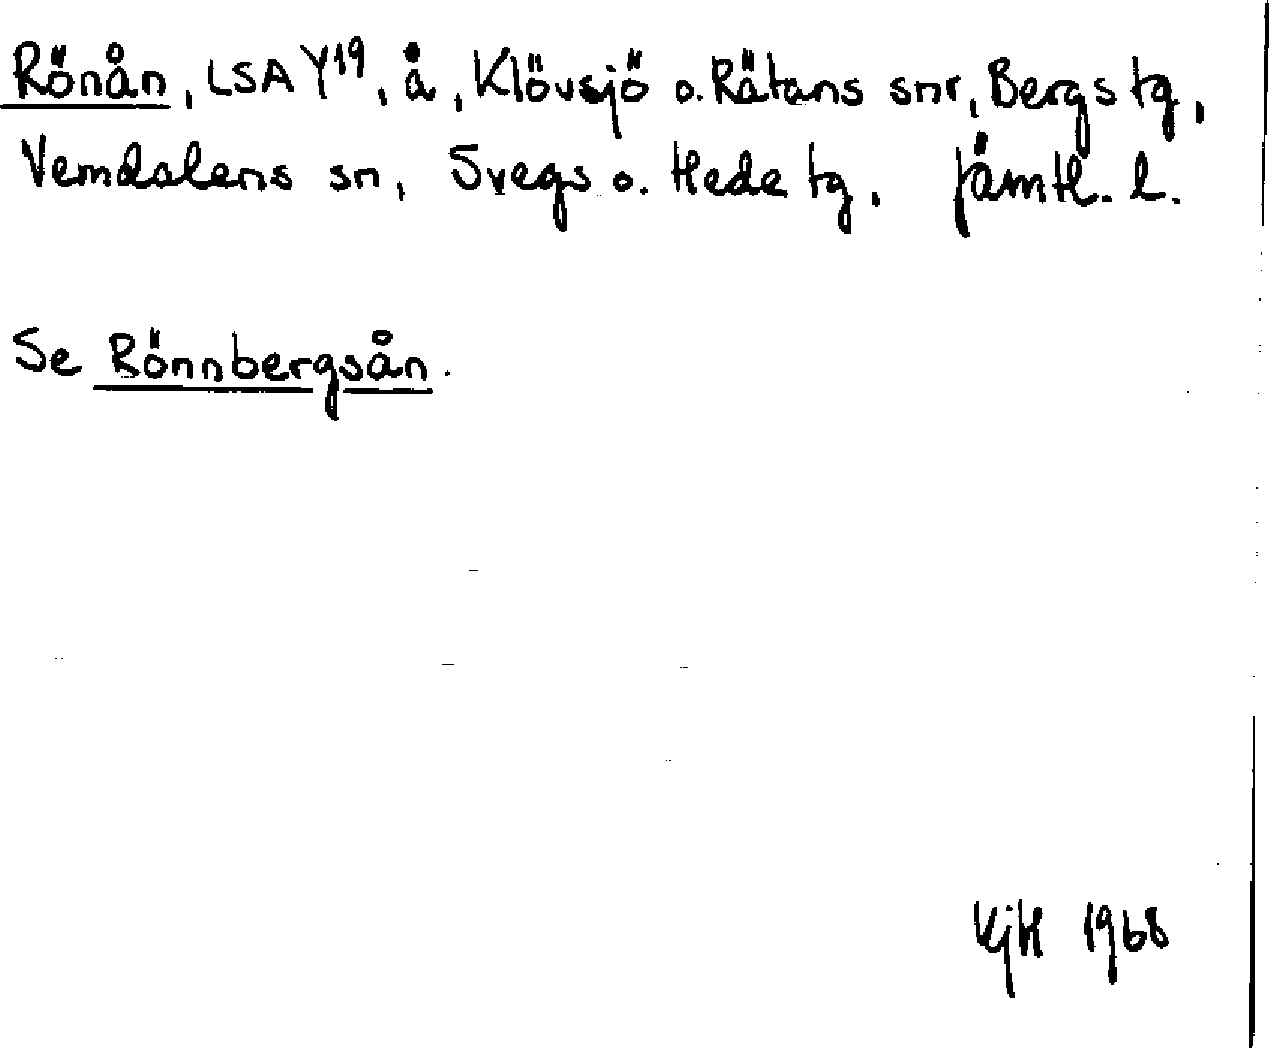 Rönån, LSA Y19, å, Klövsjö o. Rätans snr, Bergs tg,
Vemdalens sn, Svegs o. Hede tg. Jämtl. l.
Se Rönnbergsån.
KjH 1968